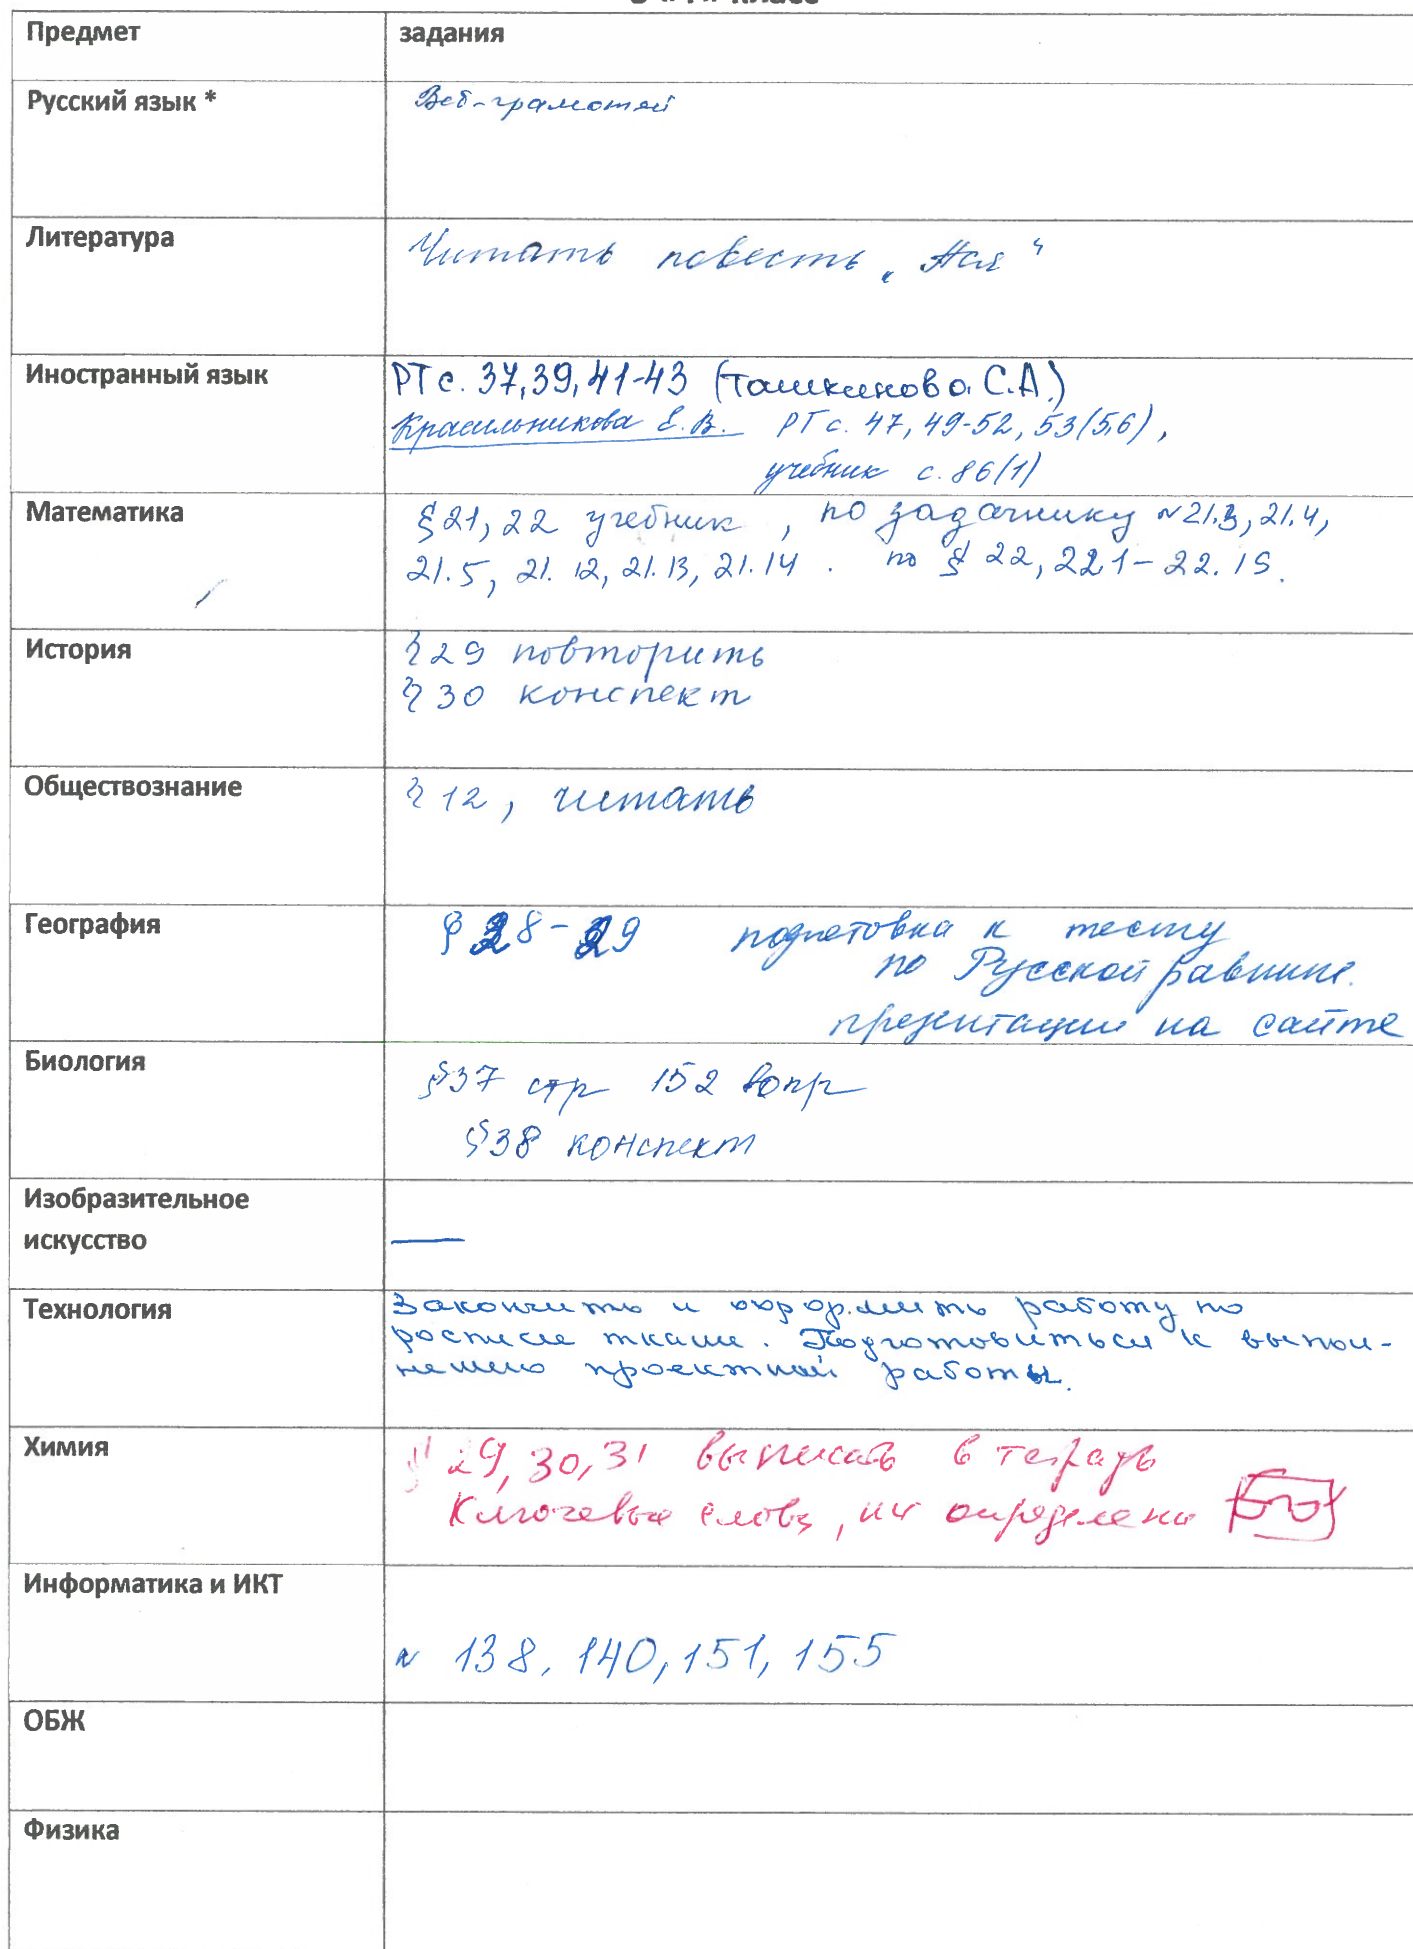 класс
Предмет задания
Русский язык * Веб-грамотей
Литература Читать повесть „Ася“
Иностранный язык РТ с. 37,39,41-43 (Ташкинова С.А.)
Красильникова Е.В. РТ с. 47, 49-52, 53(5,6),
учебник с. 86(1)
Математика § 21, 22 учебник, по задачнику №21.3, 21.4,
21.5, 21.12, 21.13, 21.14. по § 22, 22.1-22.15.
История § 29 повторить
§ 30 конспект
Обществознание § 12, читать
География § 28-29 подготовка к тесту
по Русской равнине.
презентации на сайте
Биология §37 стр 152 вопр
§38 конспект
Изобразительное
искусство —
Технология Закончить и оформить работу по
росписи ткани. Подготовиться к выпол-
нению проектной работы.
Химия § 29, 30, 31 выписать в тетрадь
Ключевые слова, их определени
Информатика и ИКТ
№ 138, 140, 151, 155
ОБЖ
Физика